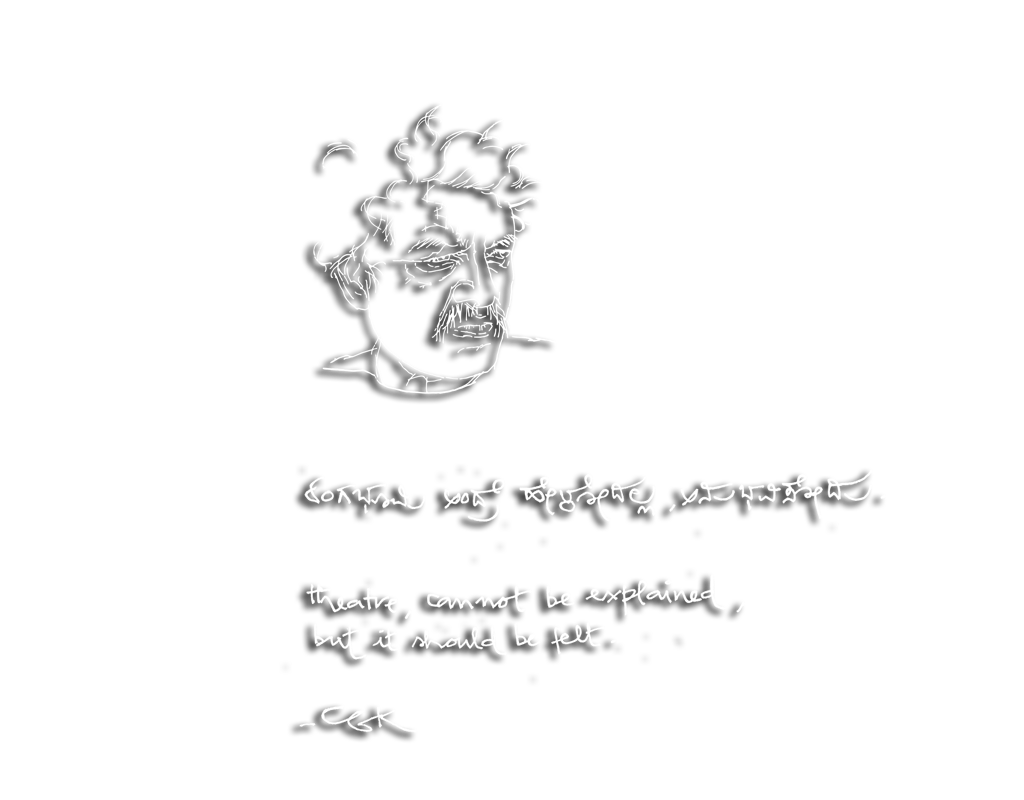 ರಂಗಭೂಮಿ ಅಂದ್ರೆ ಹೇಳ್ಕೊಳೋದಲ್ಲ, ಅನುಭವಿಸೋದು.
theatre, cannot be explained,
but it should be felt.
- CGK